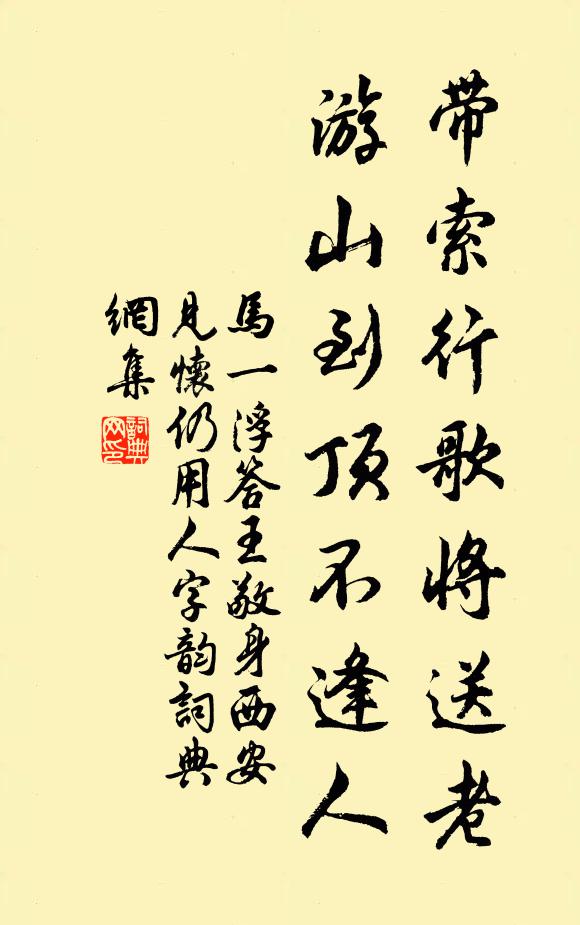 带索行歌将送老
游山到顶不逢人
馬一浮答王敬身西安
見懷仍用人字韵詞典
網集
詞典
网印